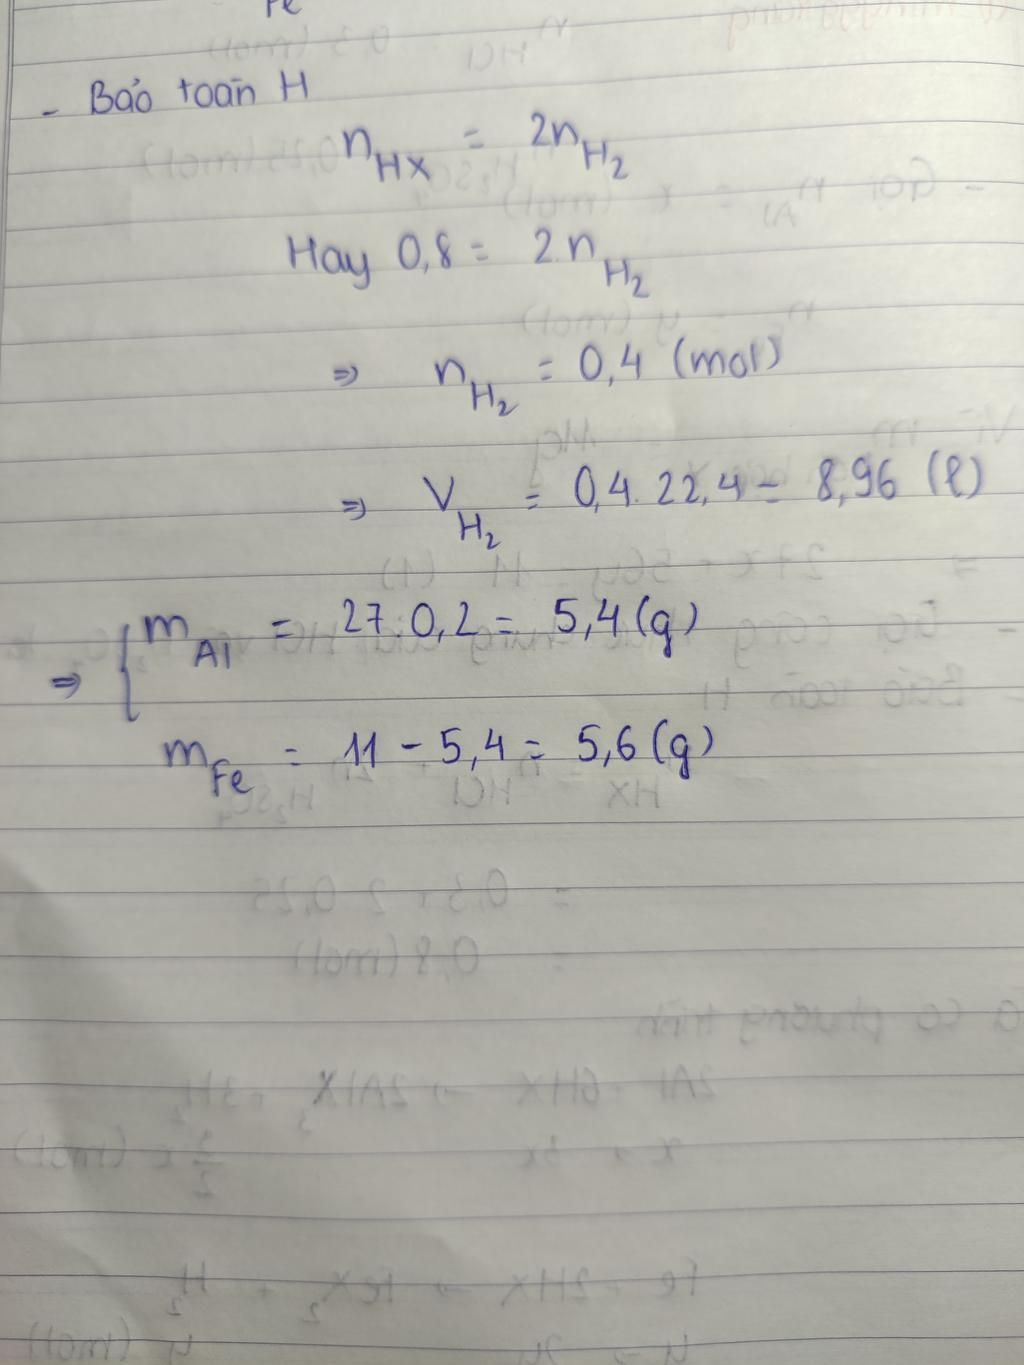 Fe
- Bảo toàn H
n HX = 2n H₂
Hay 0,8 = 2.n H₂
⇒ n H₂ = 0,4 (mol)
⇒ V H₂ = 0,4. 22,4 = 8,96 (l)
⇒ { m Al = 27.0,2 = 5,4 (g)
m Fe = 11 - 5,4 = 5,6 (g)